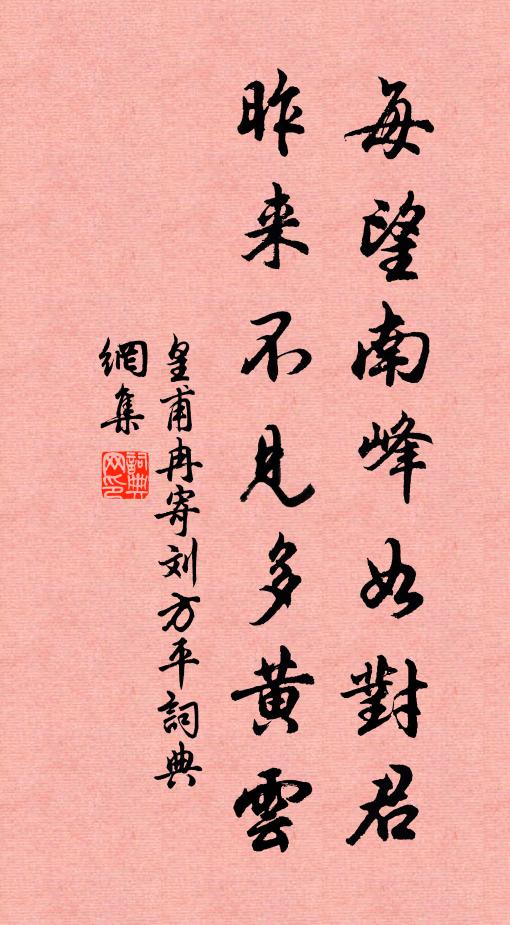 每望南峰如對君
昨来不見多黄雲
皇甫冉寄刘方平詞典
網集
詞典网印